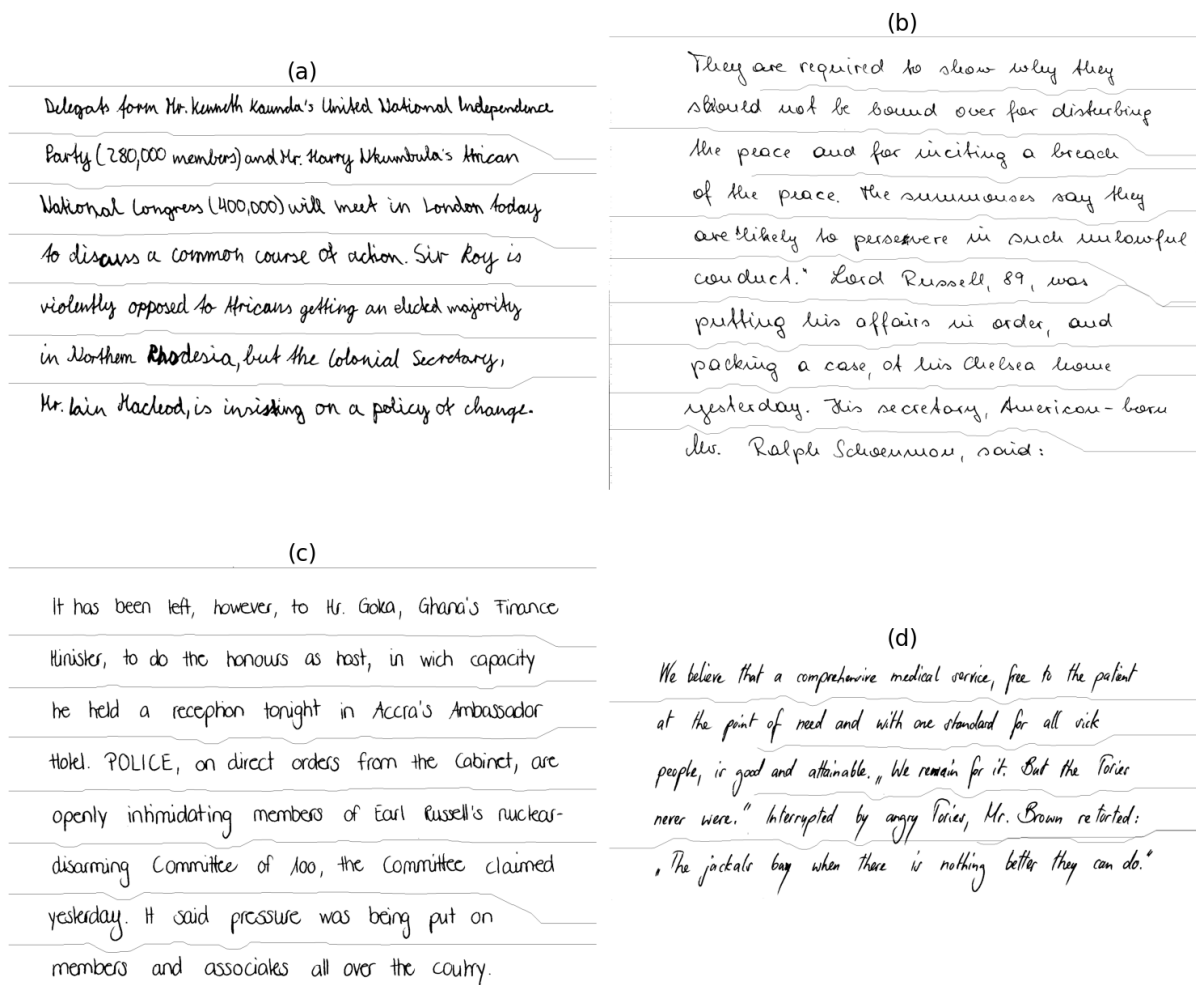 (a)
Delegats form Mr. Kenneth Kaunda's United National Independence
Party (280,000 members) and Mr. Harry Nkumbula's African
National Congress (400,000) will meet in London today
to discuss a common course of action. Sir Roy is
violently opposed to Africans getting an elected majority
in Northern Rhodesia, but the Colonial Secretary,
Mr. Iain Macleod, is insisting on a policy of change.
(b)
They are required to show why they
should not be bound over for disturbing
the peace and for inciting a breach
of the peace. The summonses say they
are "likely to persevere in such unlawful
conduct." Lord Russell, 89, was
putting his affairs in order, and
packing a case, at his Chelsea home
yesterday. His secretary, American-born
Mr. Ralph Schoenman, said:
(c)
It has been left, however, to Mr. Goka, Ghana's Finance
Minister, to do the honours as host, in wich capacity
he held a reception tonight in Accra's Ambassador
Hotel. POLICE, on direct orders from the Cabinet, are
openly intimidating members of Earl Russell's nuclear-
disarming Committee of 100, the Committee claimed
yesterday. It said pressure was being put on
members and associates all over the coutry.
(d)
We believe that a comprehensive medical service, free to the patient
at the point of need and with one standard for all sick
people, is good and attainable. „We remain for it. But the Tories
never were." Interrupted by angry Tories, Mr. Brown retorted:
„The jackals bay when there is nothing better they can do."